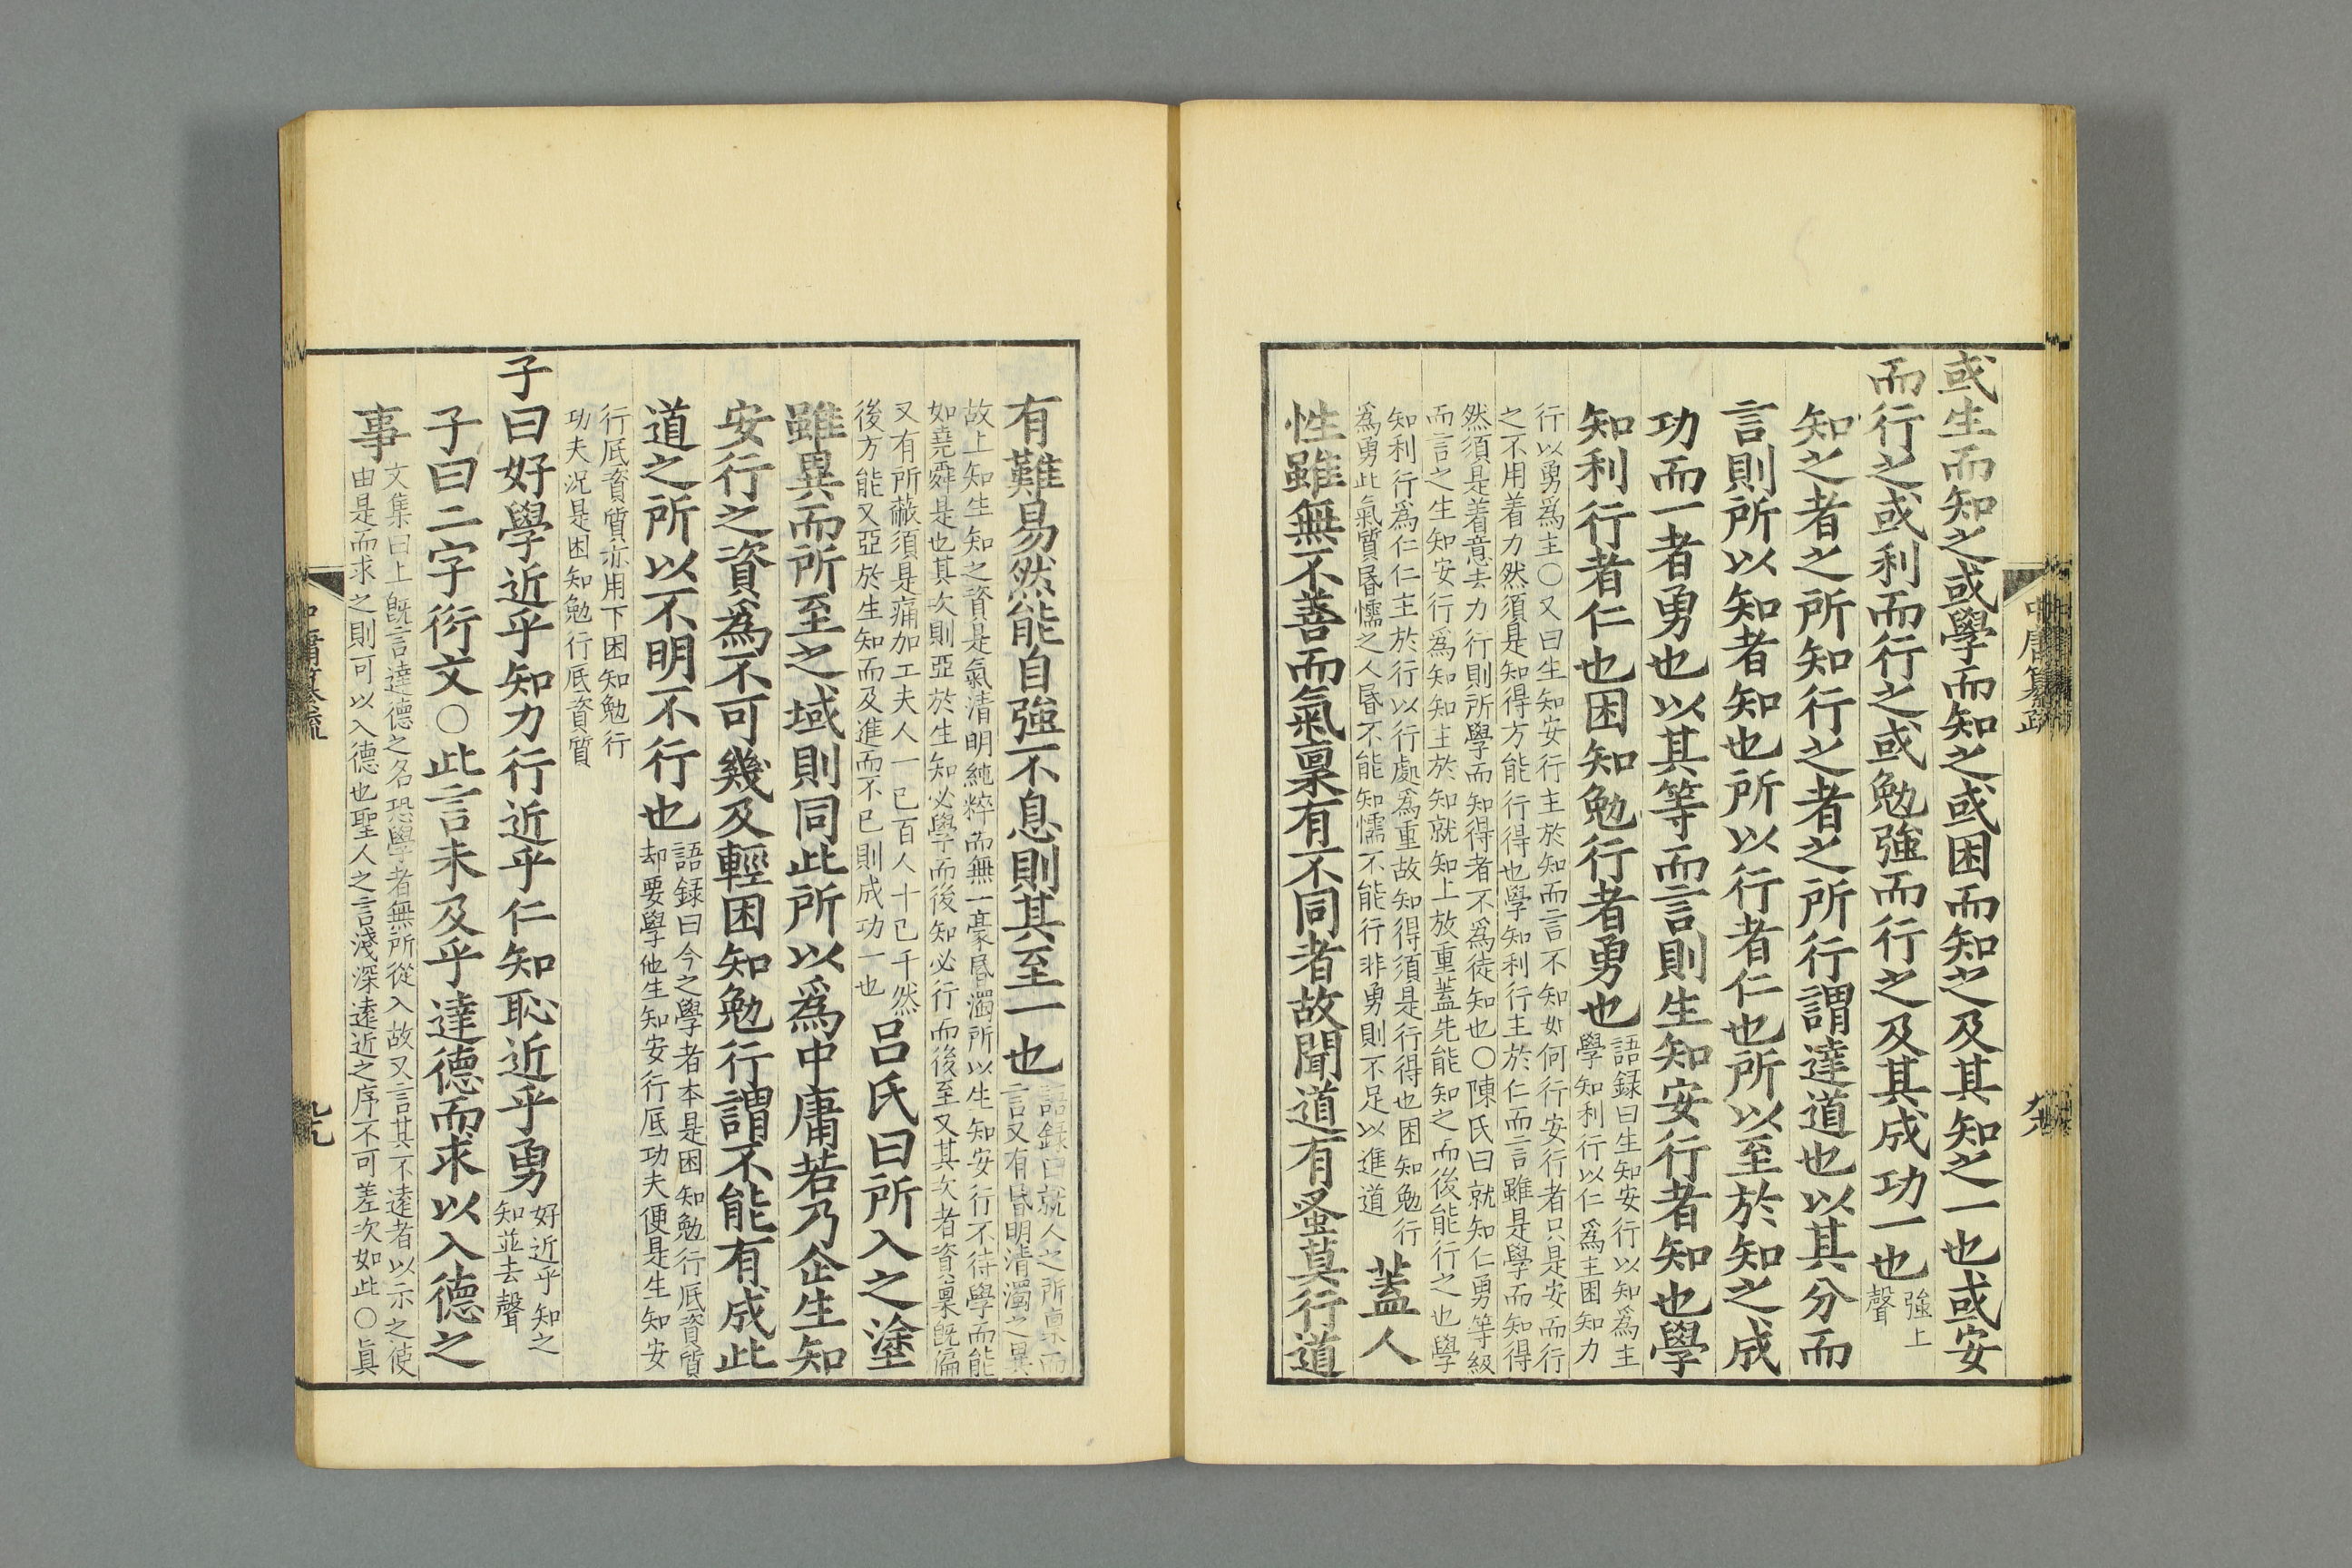 或生而知之或學而知之或困而知之及其知之一也或安
而行之或利而行之或勉強而行之及其成功一也
強上
聲
知之者之所知行之者之所行謂達道也以其分而
言則所以知者知也所以行者仁也所以至於知之成
功而一者勇也以其等而言則生知安行者知也學
知利行者仁也困知勉行者勇也
語録曰生知安行以知爲主
學知利行以仁爲主困知力
行以勇爲主○又曰生知安行主於知而言不知如何行安行者只是安而行
之不用着力然須是知得方能行得也學知利行主於仁而言雖是學而知得
然須是着意去力行則所學而知得者不爲徒知也○陳氏曰就知仁勇等級
而言之生知安行爲知知主於知就知上放重蓋先能知之而後能行之也學
知利行爲仁仁主於行以行處爲重故知得須是行得也困知勉行
爲勇此氣質昏懦之人昏不能知懦不能行非勇則不足以進道
蓋人
性雖無不善而氣稟有不同者故聞道有蚤莫行道
中庸纂疏
有難易然能自強不息則其至一也
語録曰就人之所稟而
言又有昏明清濁之異
故上知生知之資是氣清明純粹而無一豪昏濁所以生知安行不待學而能
如堯舜是也其次則亞於生知必學而後知必行而後至又其次者資稟旣偏
又有所蔽須是痛加工夫人一己百人十己千然
後方能又亞於生知而及進而不已則成功一也
呂氏曰所入之塗
雖異而所至之域則同此所以爲中庸若乃企生知
安行之資爲不可幾及輕困知勉行謂不能有成此
道之所以不明不行也
語録曰今之學者本是困知勉行底資質
却要學他生知安行底功夫便是生知安
行底資質亦用下困知勉行
功夫況是困知勉行底資質
子曰好學近乎知力行近乎仁知恥近乎勇
好近乎知之
知並去聲
子曰二字衍文○此言未及乎達德而求以入德之
事
文集曰上旣言達德之名恐學者無所從入故又言其不遠者以示之使
由是而求之則可以入德也聖人之言淺深遠近之序不可差次如此○眞